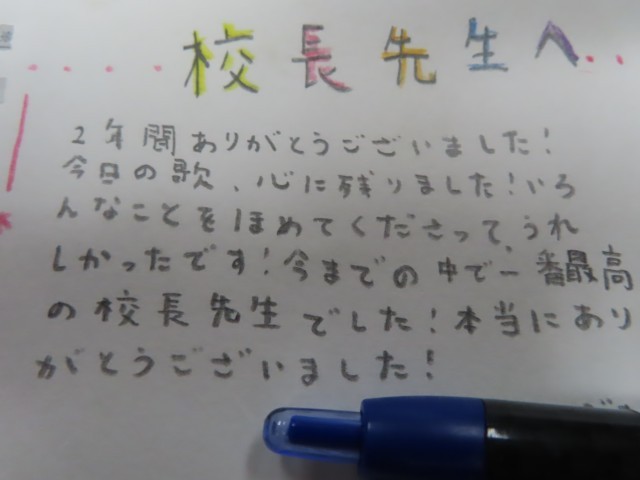 校長先生へ
2年間ありがとうございました!
今日の歌、心に残りました!いろ
んなことをほめてくださって、うれ
しかったです!今までの中で一番最高
の校長先生でした!本当にあり
がとうございました!